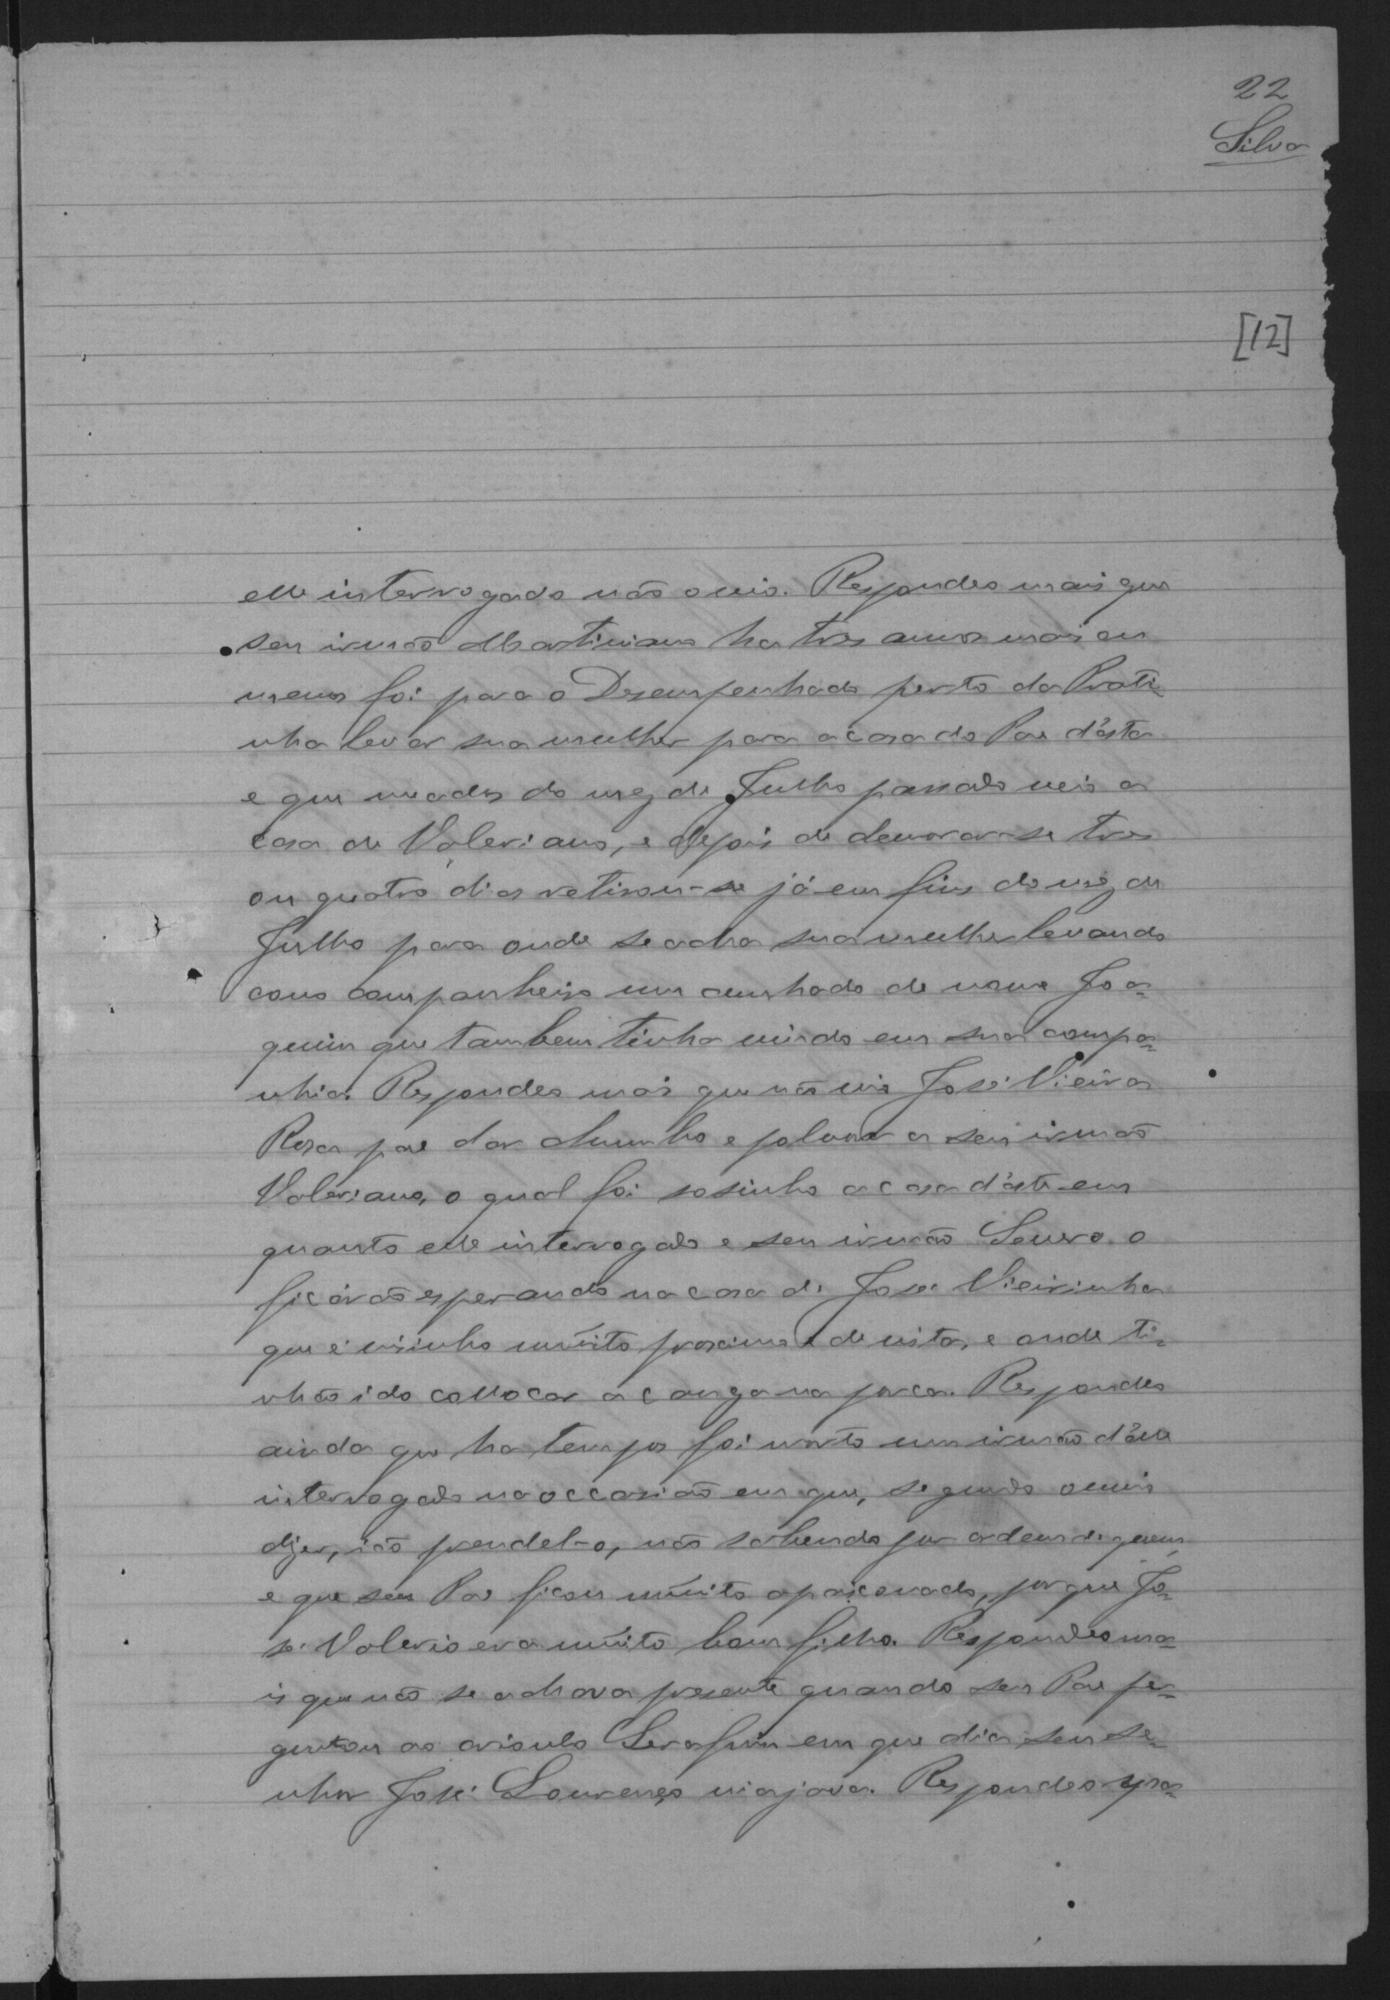 22
Silva
[12]
elle interrogado não o veio. Respondeo mais que
seu irmão Martiniano ha tres annos mais ou
menos foi para o Desempenhado perto da Prati-
nha levar sua mulher para a casa do Pae d'esta
e que meados do mez de Julho passado veio a
casa de Valeriano, e depois de demorar-se tres
ou quatro dias retirou-se já em fins do mez de
Julho para onde se acha sua mulher levando
como companheiro um cunhado de nome Joa-
quim que tambem tinha vindo em sua compa-
nhia. Respondeo mais que não vio José Vieira
Rosa pae dar chumbo e polvora a seu irmão
Valeriano, o qual foi sosinho a casa d'este em
quanto elle interrogado e seu irmão Severo o
ficárão esperando na casa de José Vieirinha
que é visinho muito proximo e de vista, e onde ti-
nhão ido collocar a canga na porca. Respondeo
ainda que ha tempos foi morto um irmão d'elle
interrogado na occasião em que, segundo ouvio
dizer, ião prendel-o, não sabendo por ordem de quem,
e que seu Pae ficou muito apaixonado, por que Jo-
sé Valerio era muito bom filho. Respondeo ma-
is que não se achava presente quando seu Pae per-
guntou ao crioulo Serafim em que dia seu se-
nhor José Lourenço viajava. Respondeo